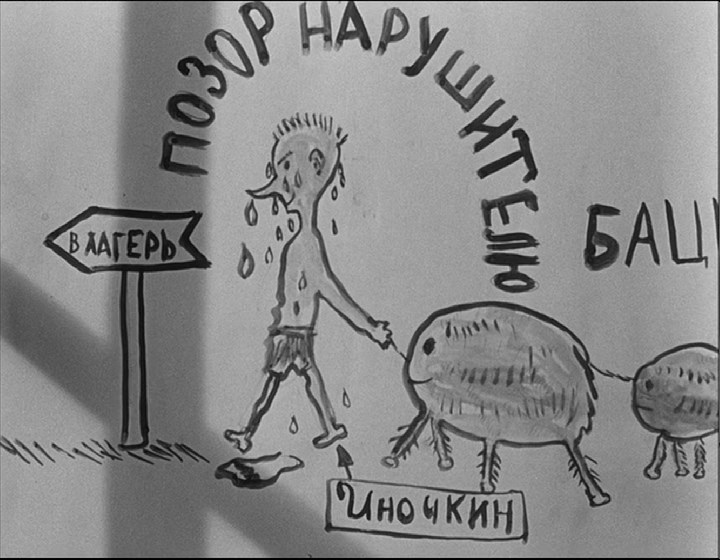 ПОЗОР НАРУШИТЕЛЮ
В ЛАГЕРЬ
БАЦ
Иночкин